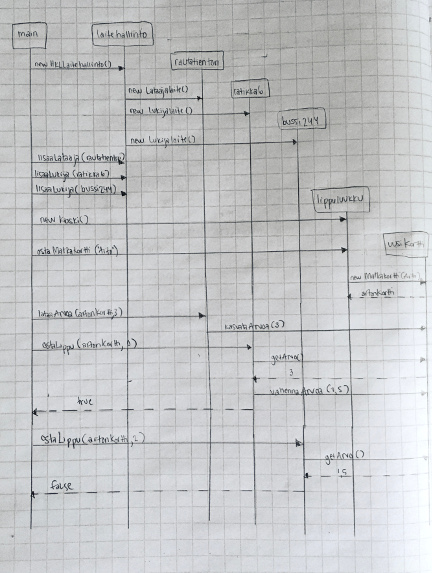 main
laitehallinto
rautatientori
ratikka6
bussi244
new HKLLaitehallinto()
new Lataajalaite()
new Lukijalaite()
new Lukijalaite()
lisaaLataaja(rautatientori)
lisaaLukija(ratikka6)
lisaaLukija(bussi244)
lippuluukku
new Kioski()
uusiKortti
ostaMatkakortti("Arto")
new Matkakortti("Arto")
artonkortti
lataaArvoa(artonKortti,3)
kasvataArvoa(3)
ostaLippu(artonKortti, 0)
getArvo()
3
vahennaArvoa(1,5)
true
ostaLippu(artonKortti,2)
getArvo()
1,5
false